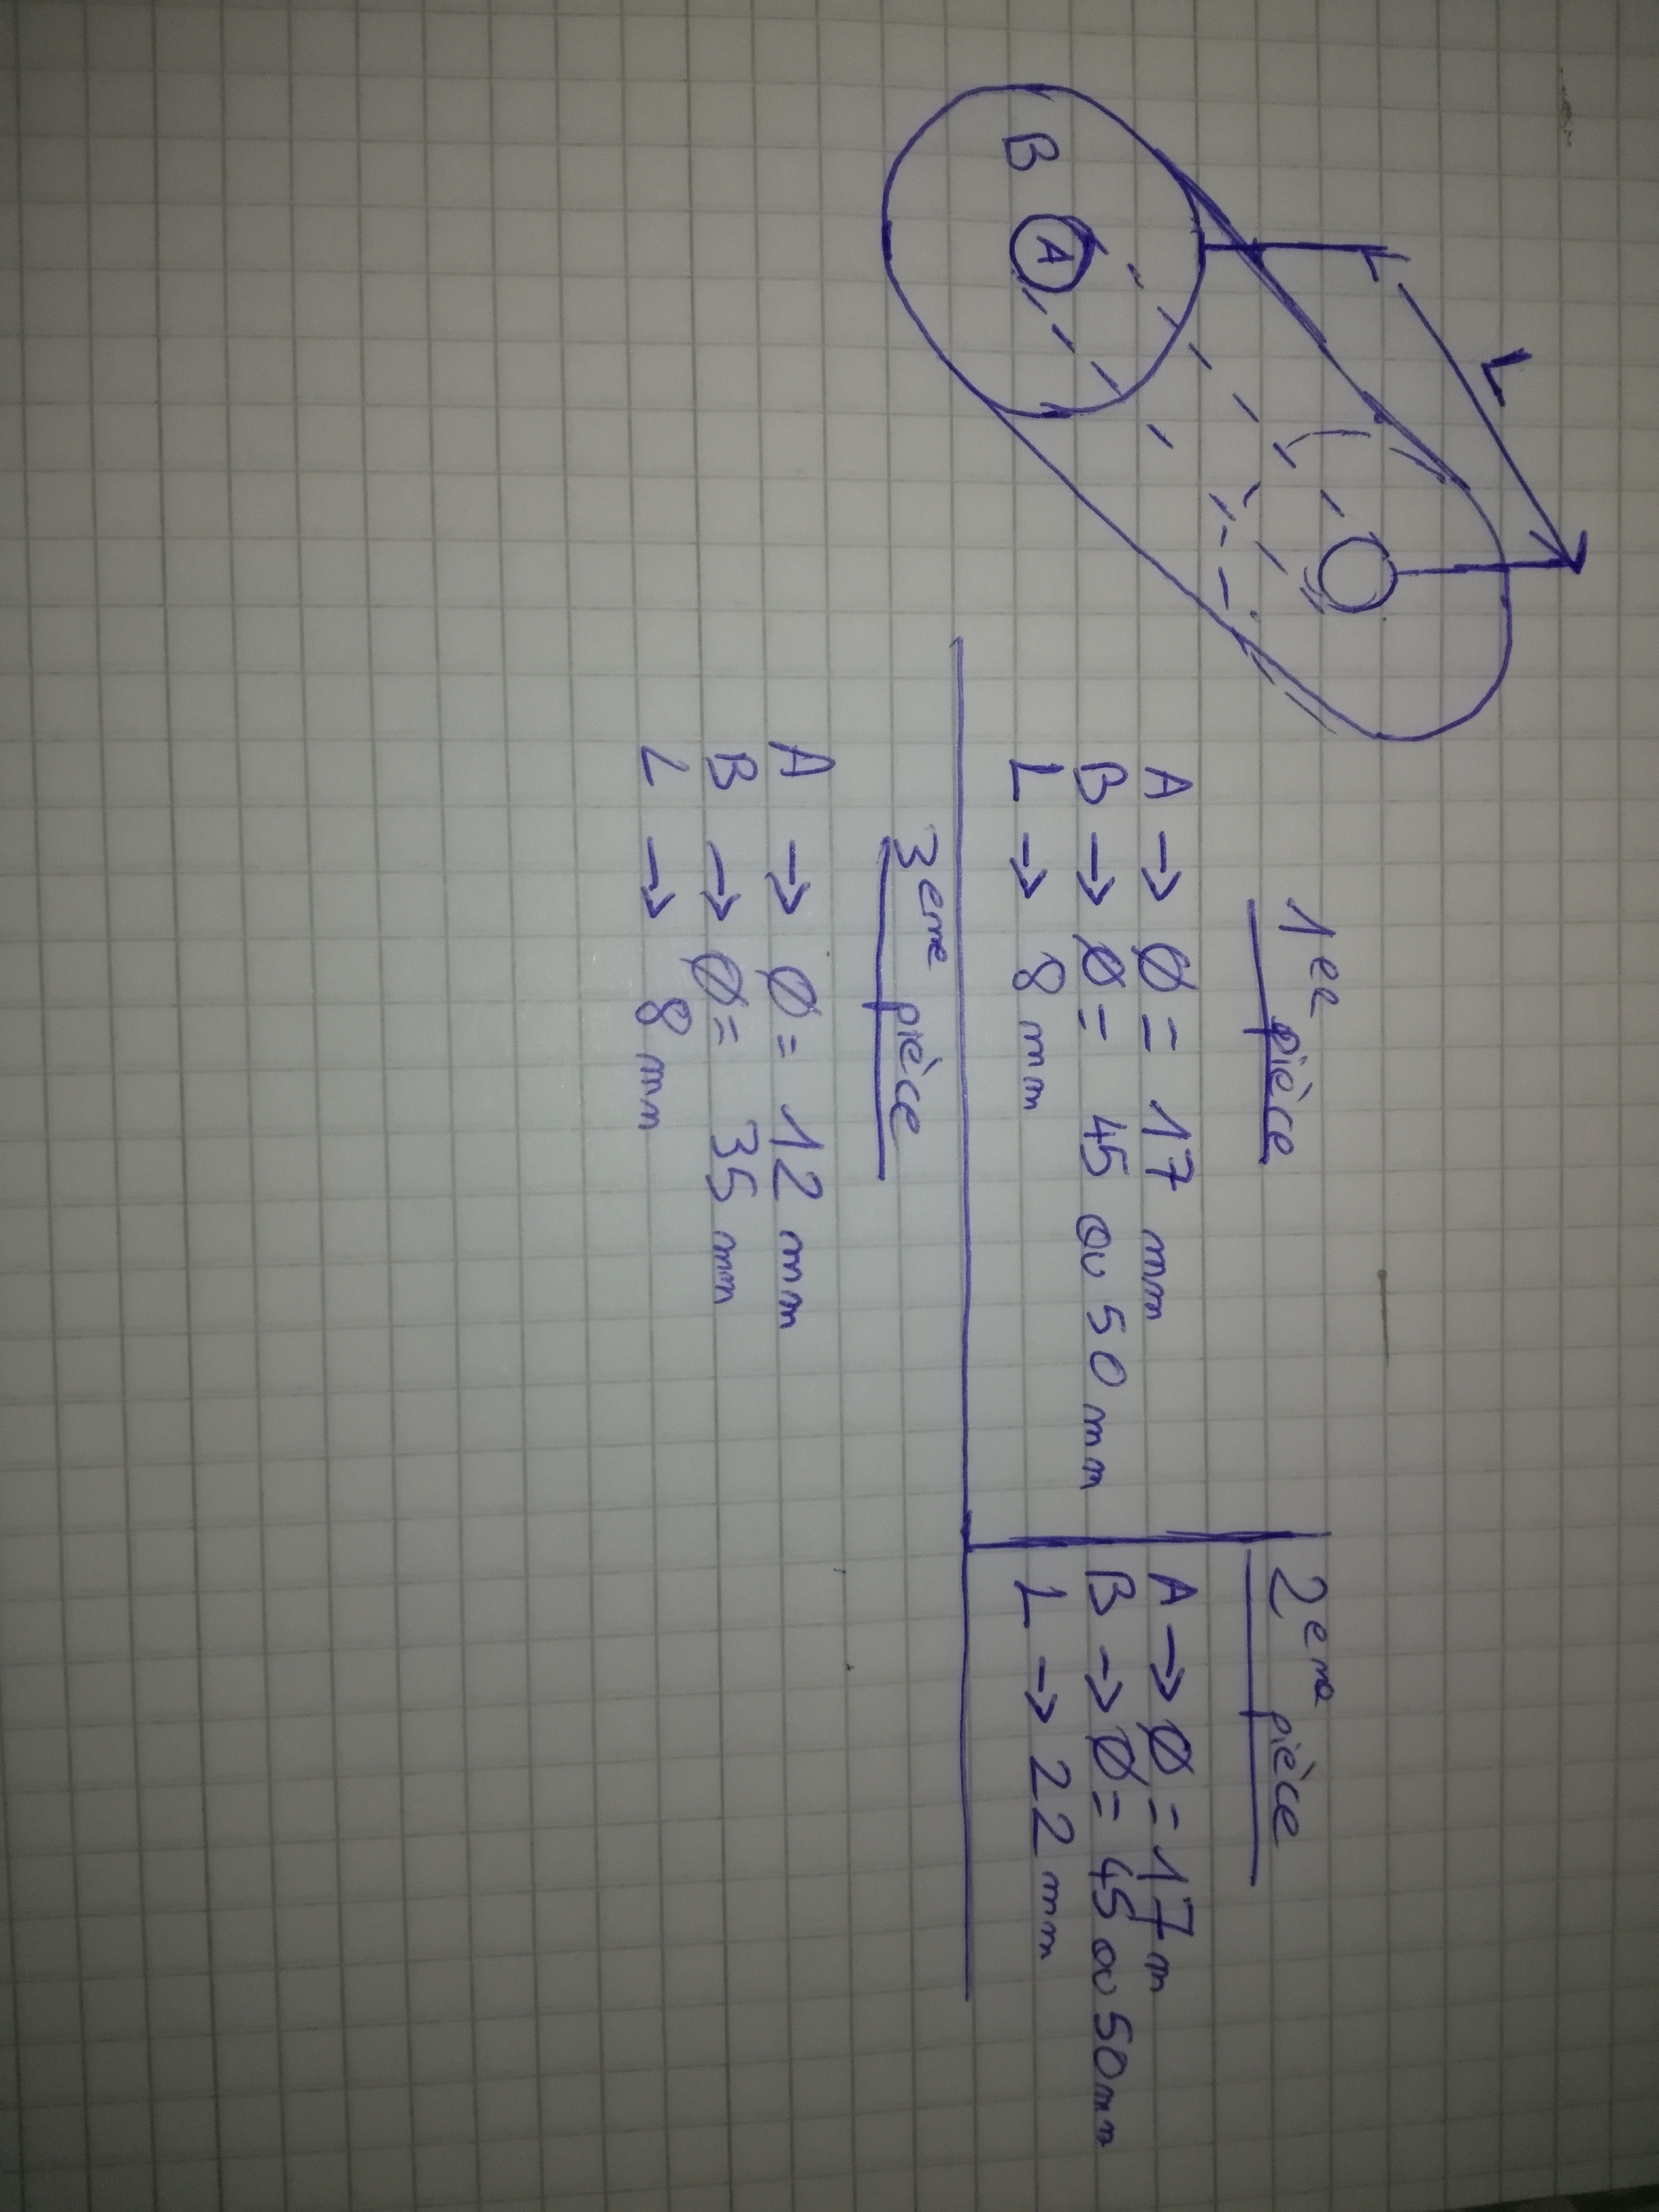 L
B
A
1ee pièce
A → Ø = 17 mm
B → Ø = 45 ou 50 mm
L → 8 mm
2eme pièce
A → Ø = 17 m
B → Ø = 45 ou 50 mm
L → 22 mm
3eme pièce
A → Ø = 12 mm
B → Ø = 35 mm
L → 8 mm